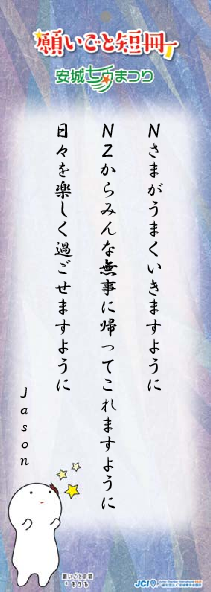 願いごと短冊
安城七夕まつり
Nさまがうまくいきますように
NZからみんな無事に帰ってこれますように
日々を楽しく過ごせますように
Jason
願いごと短冊
JCI